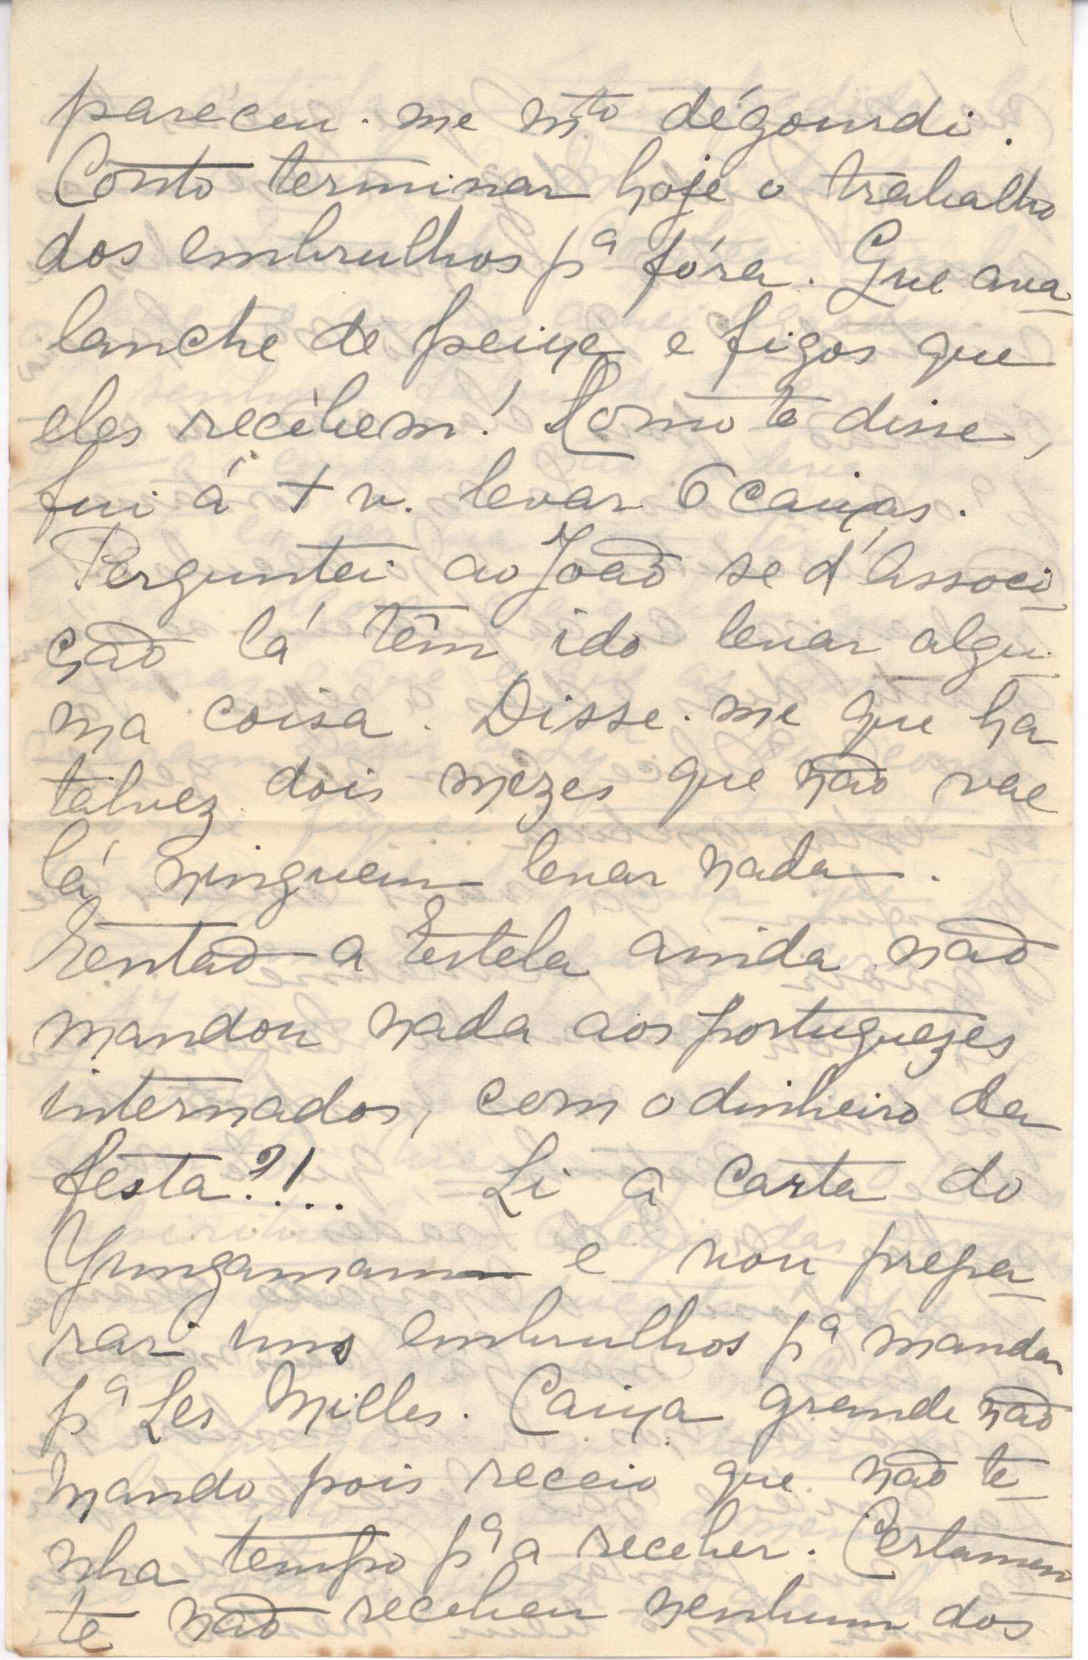 pareceu-me mto dégourdi.
Conto terminar hoje o trabalho
dos embrulhos pa fóra. Que ava-
lanche de peixe e figos que
eles recebem! Como te disse,
fui á + v. levar 6 caixas.
Perguntei ao João se d'Associa-
ção lá têm ido levar algu-
ma coisa. Disse-me que ha
talvez dois mezes que não vae
lá ninguem levar nada.
Então a Estela ainda não
mandou nada aos portuguezes
internados, com o dinheiro da
festa?!.. Li a carta do
Yungamam e vou prepa-
rar uns embrulhos pa mandar
pa Les Milles. Caixa grande não
mando pois receio que não te-
nha tempo pa a receber. Certamen-
te não recebeu nenhum dos